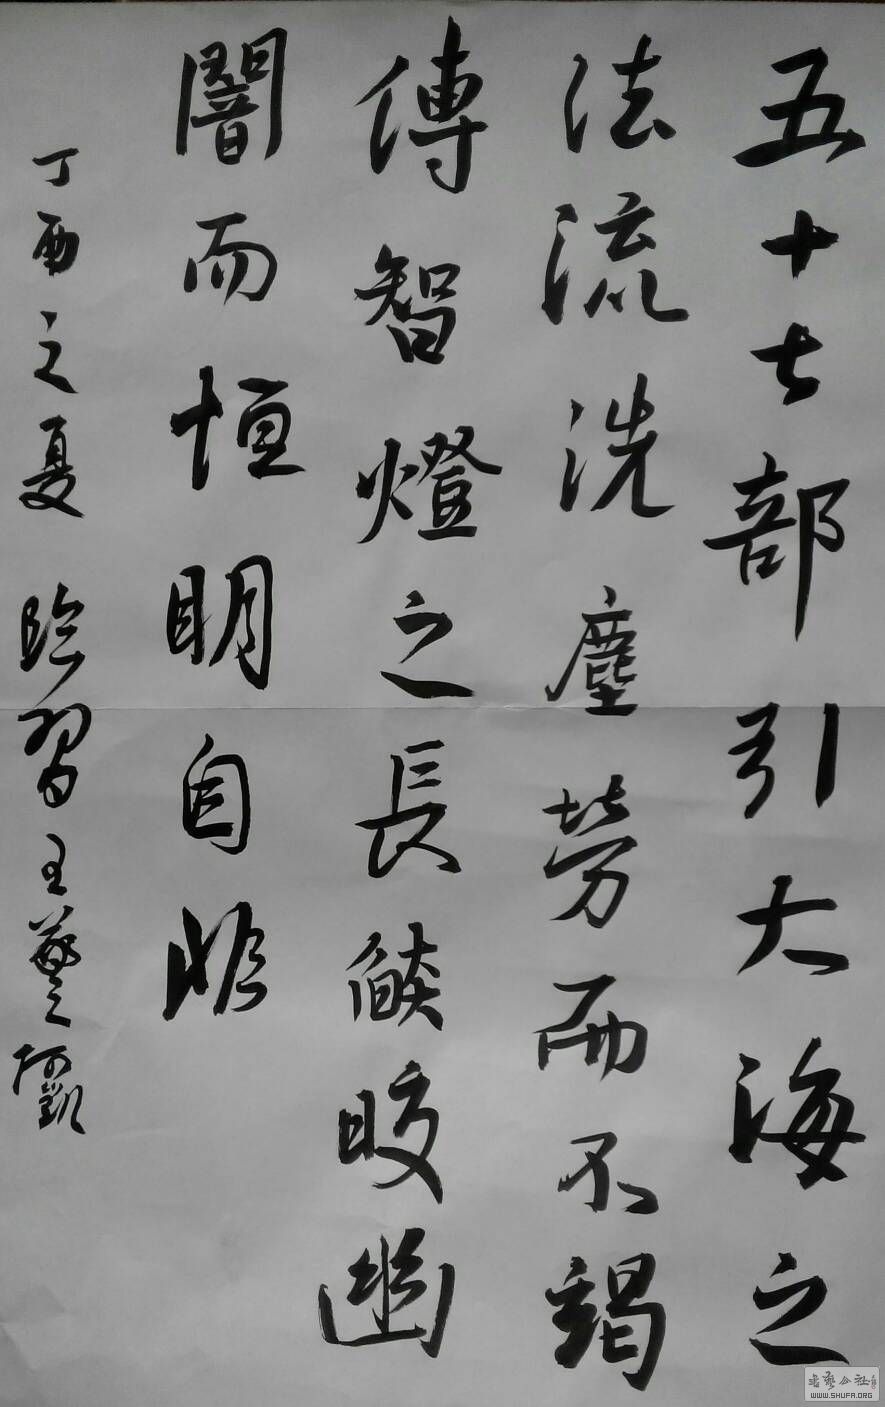 五十七部引大海之
法流洗塵劳而不竭
傳智燈之長燄皎幽
闇而恒明自非
丁酉之夏 临習王羲之 阿凱
书艺公社
WWW.SHUFA.ORG